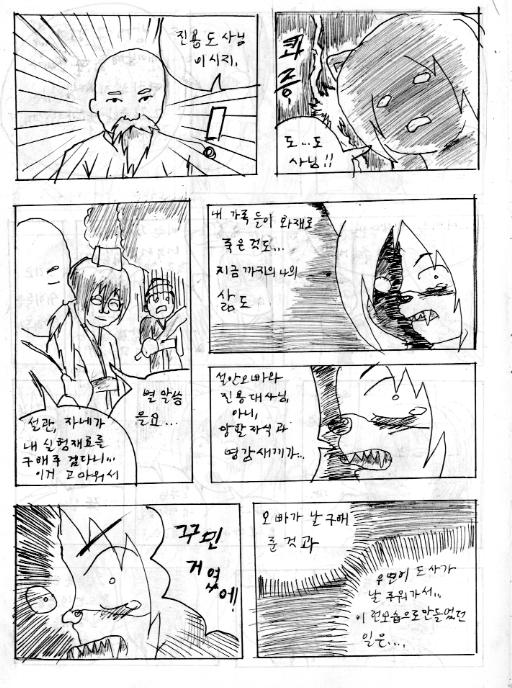 진용도사님
이시지.
콰
광
도...도
사님!!
설관, 자네가
내 실험재료를
구해주겠다니...
이거 고마워서
별말씀
을요...
내 가족들이 화재로
죽은것도...
지금까지의 나의
삶도
설안오빠와
진용대사님,
아니,
망할자식과
영감새끼가..
오빠가 날 구해
준 것과
우연히 도사가
날 주워가서..
이런모습으로만들었던
일은....
꾸민
거였
에